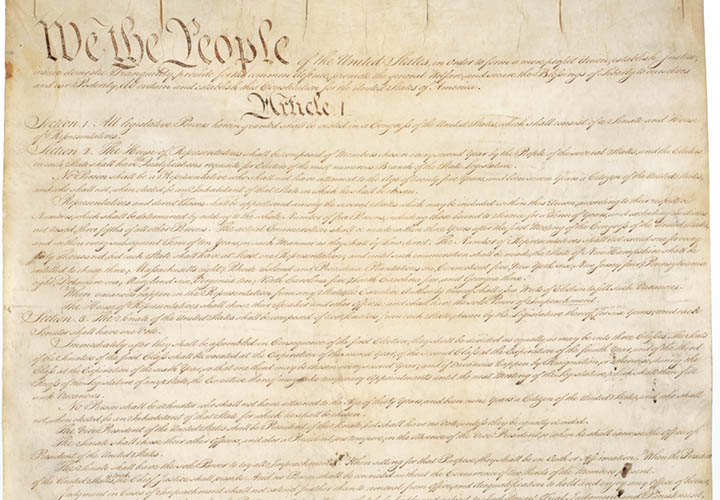 We the People of the United States, in Order to form a more perfect Union, establish Justice,
insure domestic Tranquility, provide for the common defence, promote the general Welfare, and secure the Blessings of Liberty to ourselves
and our Posterity, do ordain and establish this Constitution for the United States of America.
Article. I.
Section. 1. All legislative Powers herein granted shall be vested in a Congress of the United States, which shall consist of a Senate and House
of Representatives.
Section. 2. The House of Representatives shall be composed of Members chosen every second Year by the People of the several States, and the Electors
in each State shall have the Qualifications requisite for Electors of the most numerous Branch of the State Legislature.
No Person shall be a Representative who shall not have attained to the Age of twenty five Years, and been seven Years a Citizen of the United States,
and who shall not, when elected, be an Inhabitant of that State in which he shall be chosen.
Representatives and direct Taxes shall be apportioned among the several States which may be included within this Union, according to their respective
Numbers, which shall be determined by adding to the whole Number of free Persons, including those bound to Service for a Term of Years, and excluding Indians
not taxed, three fifths of all other Persons. The actual Enumeration shall be made within three Years after the first Meeting of the Congress of the United States,
and within every subsequent Term of ten Years, in such Manner as they shall by Law direct. The Number of Representatives shall not exceed one for every
thirty Thousand, but each State shall have at Least one Representative; and until such enumeration shall be made, the State of New Hampshire shall be
entitled to chuse three, Massachusetts eight, Rhode Island and Providence Plantations one, Connecticut five, New York six, New Jersey four, Pennsylvania
eight, Delaware one, Maryland six, Virginia ten, North Carolina five, South Carolina five, and Georgia three.
When vacancies happen in the Representation from any State, the Executive Authority thereof shall issue Writs of Election to fill such Vacancies.
The House of Representatives shall chuse their Speaker and other Officers; and shall have the sole Power of Impeachment.
Section. 3. The Senate of the United States shall be composed of two Senators from each State, chosen by the Legislature thereof, for six Years; and each
Senator shall have one Vote.
Immediately after they shall be assembled in Consequence of the first Election, they shall be divided as equally as may be into three Classes. The Seats
of the Senators of the first Class shall be vacated at the Expiration of the second Year, of the second Class at the Expiration of the fourth Year, and of the third
Class at the Expiration of the sixth Year, so that one third may be chosen every second Year; and if Vacancies happen by Resignation, or otherwise, during the
Recess of the Legislature of any State, the Executive thereof may make temporary Appointments until the next Meeting of the Legislature, which shall then fill
such Vacancies.
No Person shall be a Senator who shall not have attained to the Age of thirty Years, and been nine Years a Citizen of the United States, and who shall
not, when elected, be an Inhabitant of that State for which he shall be chosen.
The Vice President of the United States shall be President of the Senate, but shall have no Vote, unless they be equally divided.
The Senate shall chuse their other Officers, and also a President pro tempore, in the Absence of the Vice President, or when he shall exercise the Office of
President of the United States.
The Senate shall have the sole Power to try all Impeachments. When sitting for that Purpose, they shall be on Oath or Affirmation. When the President
of the United States is tried, the Chief Justice shall preside: And no Person shall be convicted without the Concurrence of two thirds of the Members present.
Judgment in Cases of Impeachment shall not extend further than to removal from Office, and disqualification to hold and enjoy any Office of honor,